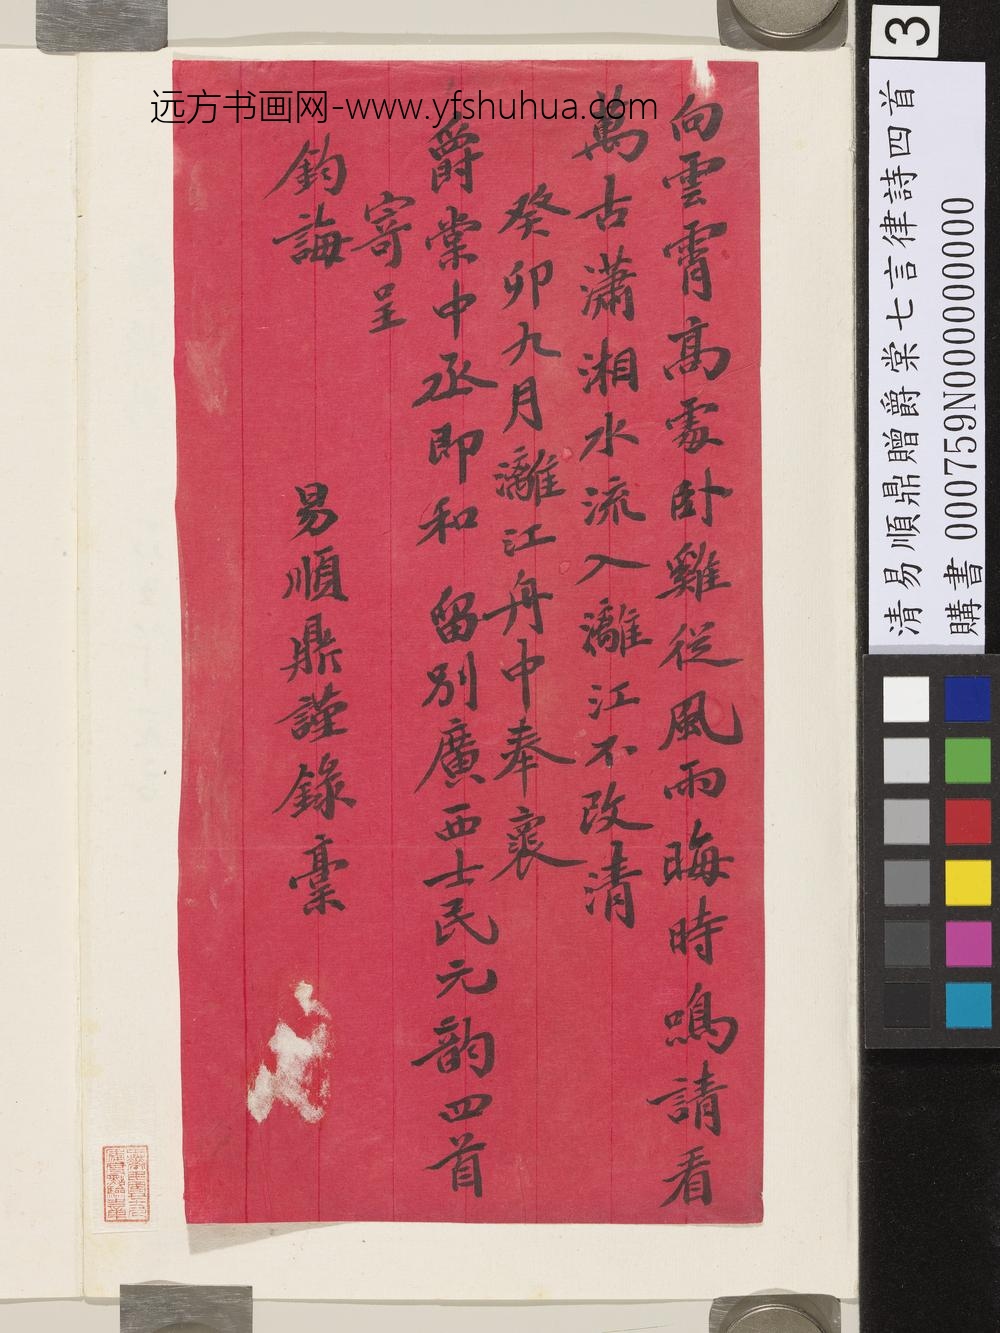 向雲霄高處卧雞從風雨晦時鳴請看
萬古瀟湘水流入灕江不改清
癸卯九月灕江舟中奉褱
爵棠中丞即和 留別廣西士民元韵四首
寄呈
鈞誨
易順鼎謹錄稾
远方书画网-www.yfshuhua.com
3
清易順鼎贈爵棠七言律詩四首
購書 000759N000000000